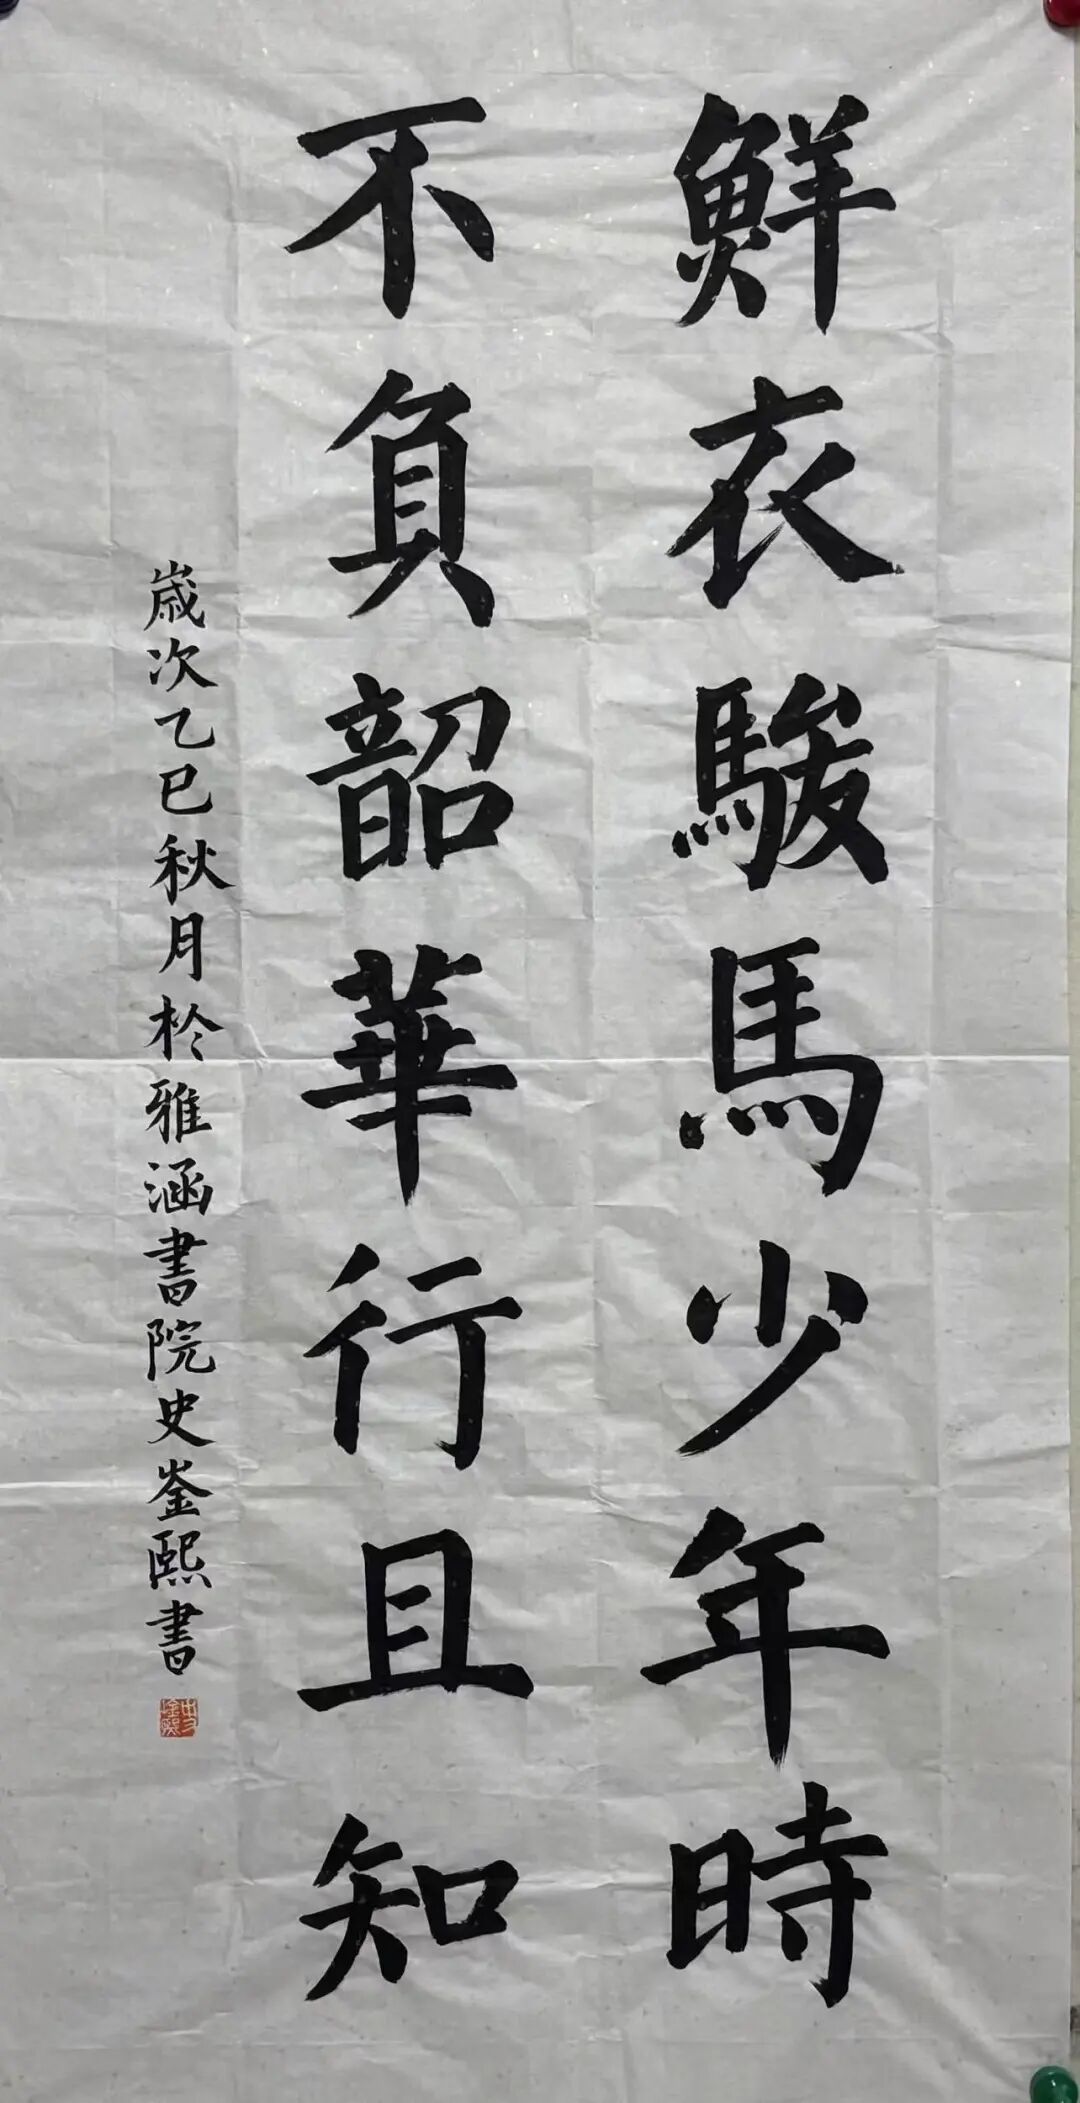 鮮衣駿馬少年時
不負韶華行且知
歲次乙巳秋月於雅涵書院史崟熙書